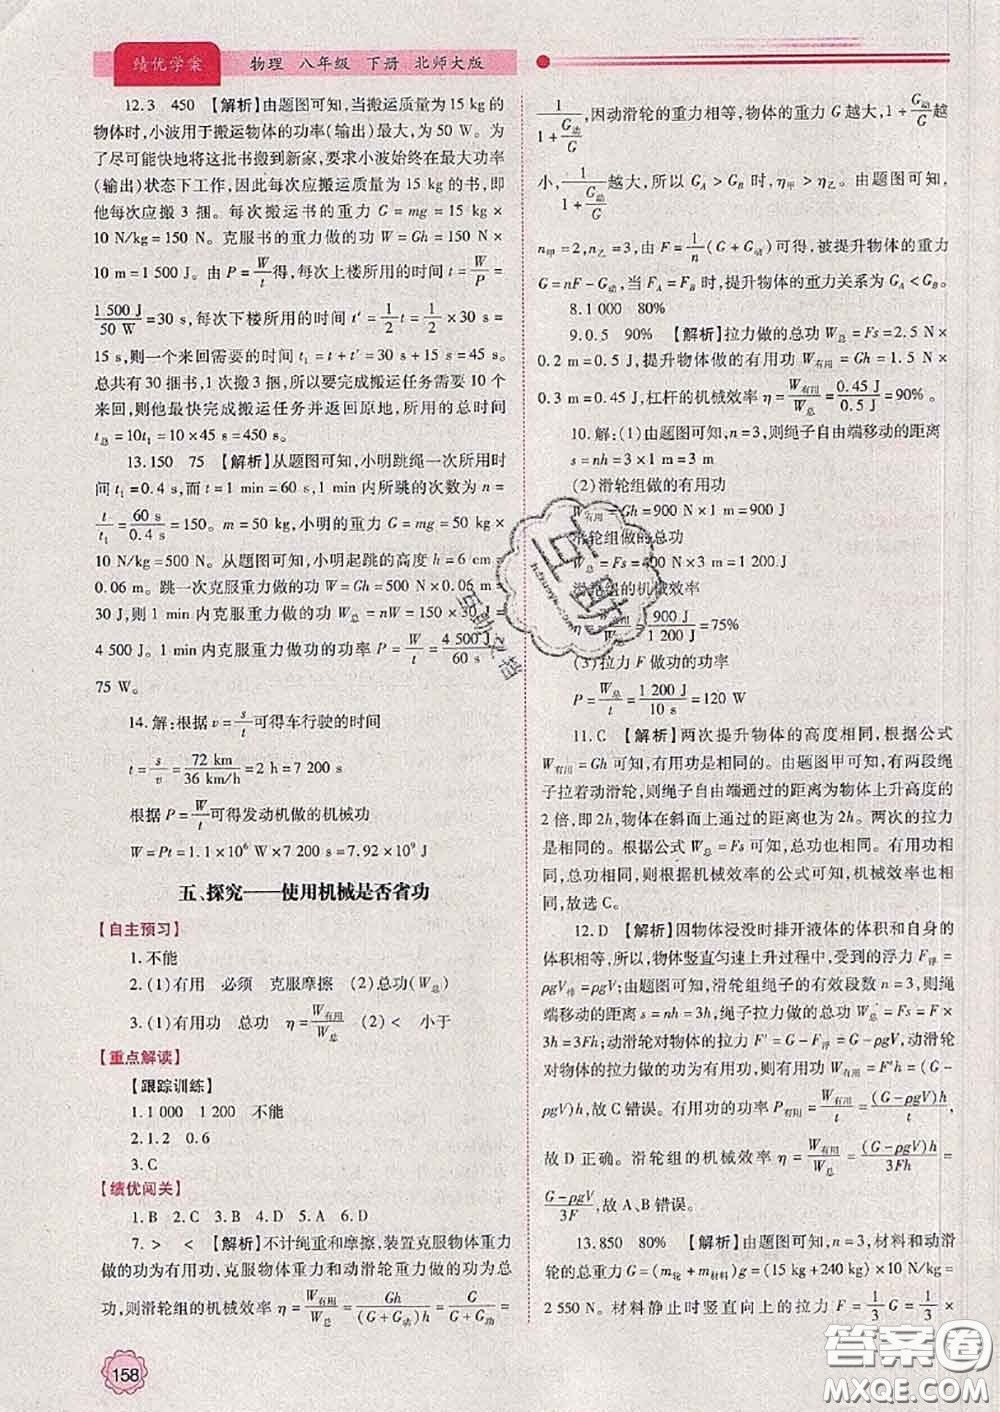 绩优学案 物理 八年级 下册 北师大版
12.3 450 【解析】由题图可知,当搬运质量为 15 kg 的
物体时,小波用于搬运物体的功率(输出)最大,为 50 W。为
了尽可能快地将这批书搬到新家,要求小波始终在最大功率
(输出)状态下工作,因此每次应搬运质量为 15 kg 的书,即
他每次应搬 3 捆。每次搬运书的重力 G = mg = 15 kg
× 10 N/kg = 150 N。克服书的重力做的功 W = Gh = 150 N ×
10 m = 1 500 J。由 P = W/t 得,每次上楼所用的时间 t = W/P =
1 500 J/50 W = 30 s,每次下楼所用的时间 t′ = 1/2 t = 1/2 × 30 s =
15 s,则一个来回需要的时间 t₁ = t + t′ = 30 s + 15 s = 45 s。
总共有 30 捆书,1 次搬 3 捆,所以要完成搬运任务需要 10 个
来回,则他最快完成搬运任务并返回原地,所用的总时间
t总 = 10t₁ = 10 × 45 s = 450 s。
13.150 75 【解析】从题图可知,小明跳绳一次所用时
间 t₁ = 0.4 s,而 t = 1 min = 60 s,1 min 内所跳的次数为 n =
t/t₁ = 60 s/0.4 s = 150。m = 50 kg,小明的重力 G = mg = 50 kg ×
10 N/kg = 500 N。从题图可知,小明起跳的高度 h = 6 cm =
0.06 m。跳一次克服重力做的功 W = Gh = 500 N × 0.06 m =
30 J,则 1 min 内克服重力做的功 W总 = nW = 150 × 30 J =
4 500 J。1 min 内克服重力做功的功率 P = W/t = 4 500 J/60 s =
75 W。
14.解:根据 v = s/t 可得车行驶的时间
t = s/v = 72 km/36 km/h = 2 h = 7 200 s
根据 P = W/t 可得发动机做的机械功
W = Pt = 1.1 × 10⁶ W × 7 200 s = 7.92 × 10⁹ J
五、探究——使用机械是否省功
【自主预习】
1.不能
2.(1)有用 必须 克服摩擦 (2)总功(W总)
3.(1)有用功 总功 η = W有用/W总 (2)< 小于
【重点解读】
【跟踪训练】
1.1 000 1 200 不能
2.1.2 0.6
3.C
【绩优闯关】
1.B 2.C 3.C 4.D 5.A 6.D
7.> < 【解析】不计绳重和摩擦,装置克服物体重力
做的功为有用功,克服物体重力和动滑轮重力做的功为总
功,则滑轮组的机械效率 η = W有用/W总 = Gh/(G + G动)h = G/G + G动 =
1/(1 + G动/G),因动滑轮的重力相等,物体的重力 G 越大,1 + G动/G 越
小,1/(1 + G动/G) 越大,所以 G_A > G_B 时,η甲 > η乙。由题图可知,
n甲 = 2,n乙 = 3,由 F = 1/n (G + G动) 可得,被提升物体的重力
G = nF − G动,当 F_A = F_B 时,提升物体的重力关系为 G_A < G_B。
8.1 000 80%
9.0.5 90% 【解析】拉力做的总功 W总 = Fs = 2.5 N ×
0.2 m = 0.5 J,提升物体做的有用功 W有用 = Gh = 1.5 N ×
0.3 m = 0.45 J,杠杆的机械效率 η = W有用/W总 = 0.45 J/0.5 J = 90%。
10.解:(1)由题图可知,n = 3,则绳子自由端移动的距离
s = nh = 3 × 1 m = 3 m
(2)滑轮组做的有用功
W有用 = Gh = 900 N × 1 m = 900 J
滑轮组做的总功
W总 = Fs = 400 N × 3 m = 1 200 J
滑轮组的机械效率
η = W有用/W总 = 900 J/1 200 J = 75%
(3)拉力 F 做功的功率
P = W总/t = 1 200 J/10 s = 120 W
11.C 【解析】两次提升物体的高度相同,根据公式
W有用 = Gh 可知,有用功是相同的。由题图甲可知,有两段绳
子拉着动滑轮,则绳子自由端通过的距离为物体上升高度的
2 倍,即 2h,物体在斜面上通过的距离也为 2h。两次的拉力
是相同的,根据公式 W总 = Fs 可知,总功也相同。有用功相
同,总功相同,则根据机械效率的公式可知,机械效率也相
同,故选 C。
12.D 【解析】因物体浸没时排开液体的体积和自身的
体积相等,所以,物体竖直匀速上升过程中,受到的浮力 F浮 =
ρgV排 = ρgV;由题图可知,滑轮组绳子的有效段数 n = 3,则绳
端移动的距离 s = nh = 3h,绳子拉力做的总功 W总 = Fs = F ×
3h = 3Fh;动滑轮对物体的拉力 F′ = G − F浮 = G − ρgV,动滑轮
对物体的拉力做的功为有用功,则有用功 W有用 = F′h = (G −
ρgV)h,故 C 错误。有用功的功率 P有用 = W有用/t = (G − ρgV)h/t,
故 D 正确。滑轮组的机械效率 η = W有用/W总 = (G − ρgV)h/3Fh =
G − ρgV/3F,故 A、B 错误。
13.850 80% 【解析】由题图可知,n = 3,材料和动滑
轮的总重力 G = (m轮 + m材料)g = (15 kg + 240 kg) × 10 N/kg =
2 550 N。材料静止时竖直向上的拉力 F = 1/3 G = 1/3 ×
158
互助文档
答案圈
MXQE.COM